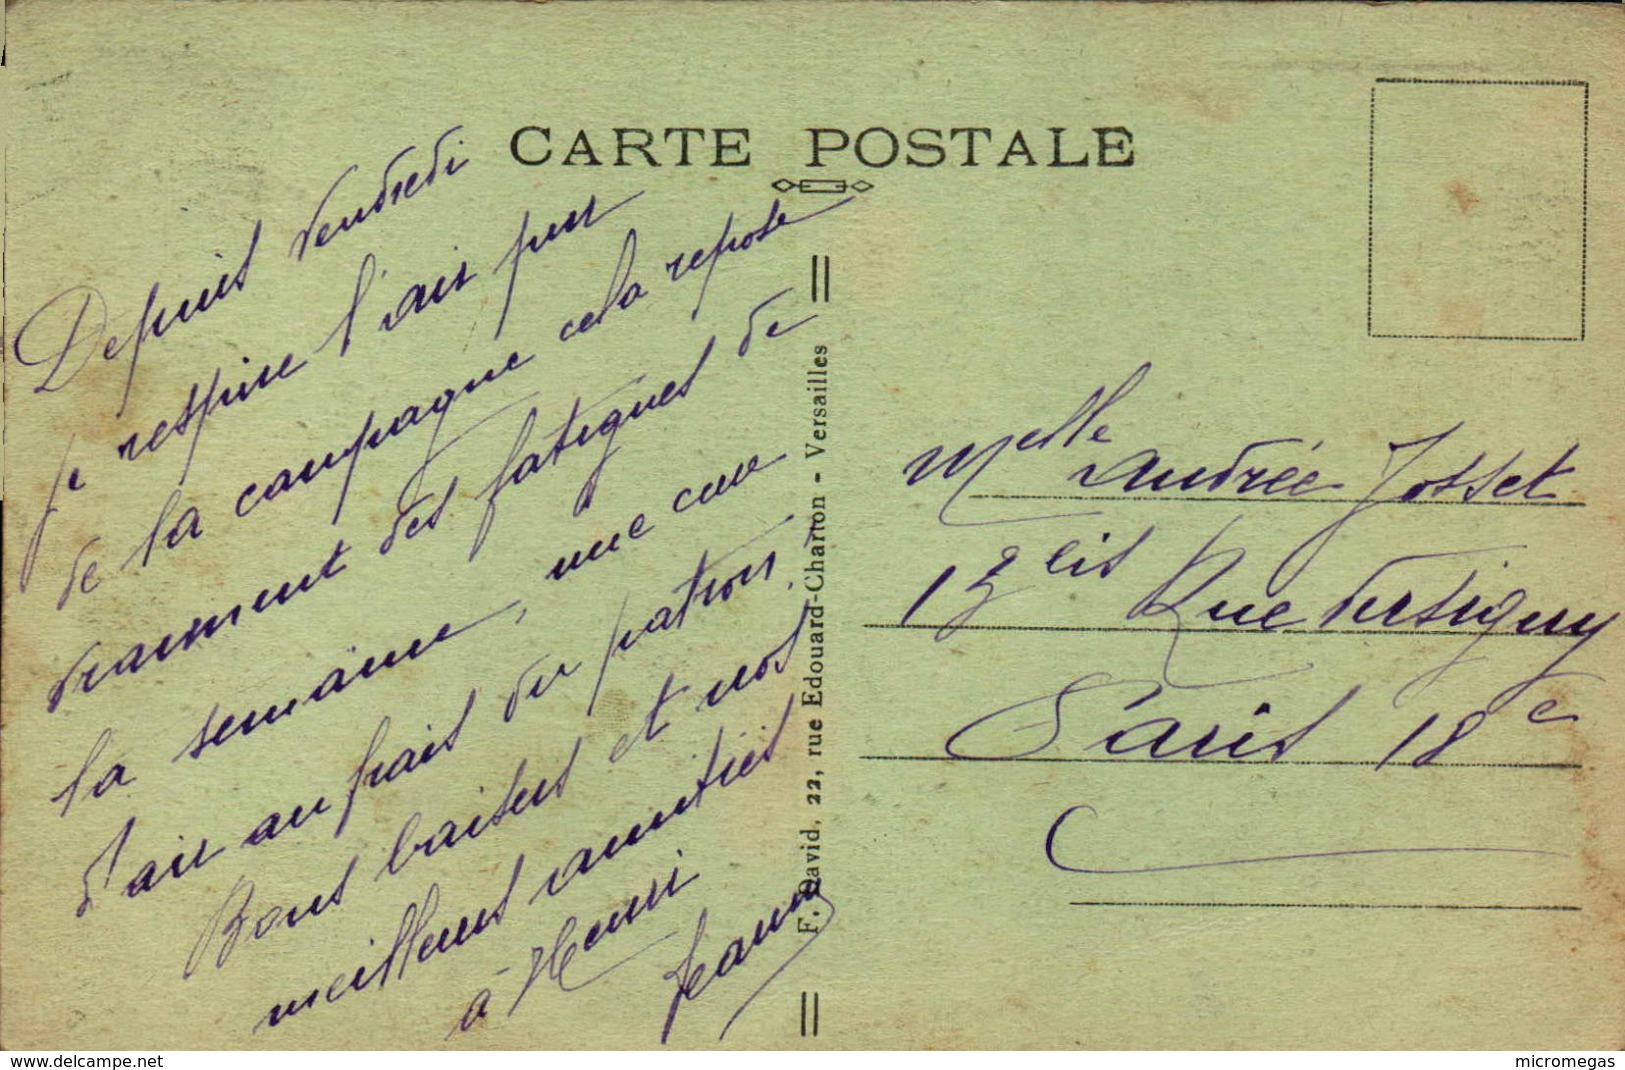 CARTE POSTALE
Depuis vendredi
je respire l'air pur
de la campagne cela repose
vraiment des fatigues de
la semaine, une cure
d'air au frais du patron.
Bons baisers et nos
meilleures amitiés
à Henri
Jeanne
F. David, 22, rue Edouard-Charton - Versailles
Melle Andrée Josset
13 bis Rue Versigny
Paris 18e
www.delcampe.net
micromegas